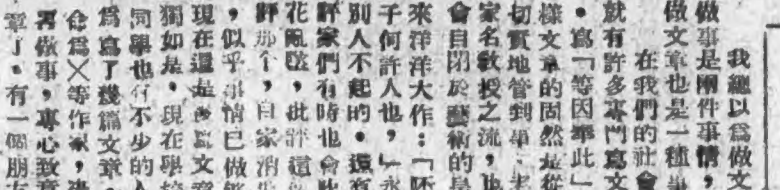 我總以爲做文
做事是兩件事情，
做文章也是一種事
在我們的社會
就有許多專門寫文
。寫「等因奉此」
樣文章的固然是從
切實地管到畢，
家名敎授之流，也
會自閉於藝術的
來洋洋大作：「
子何許人也，」
別人不起的。還有
評家們有時也會
花亂墜，批評這
評那个，自家消
，似乎事情已做
現在還是 寫文
獨如是，現在學校
同學也有不少的人
爲寫了幾篇文章，
命爲╳等作家，
着做事，專心致意
章了。有一個朋友